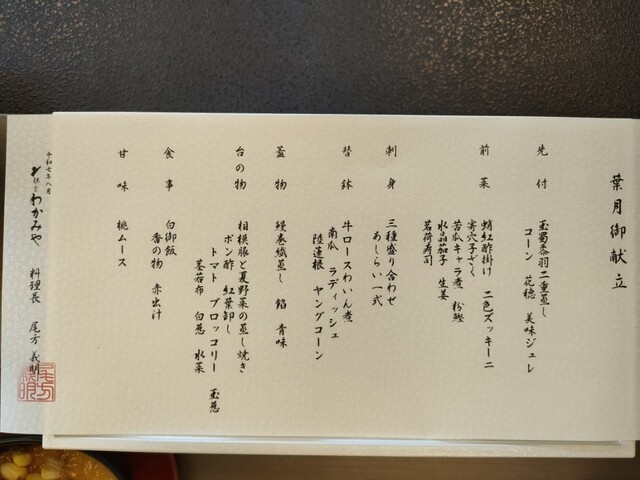 葉月御献立
先付
玉蜀黍羽二重蒸し
コーン 花穂 美味ジュレ
前菜
蛸紅酢掛け 二色ズッキーニ
寄穴子ざく
苦瓜キャラ煮 粉鰹
水晶茄子 生姜
茗荷寿司
刺身
三種盛り合わせ
あしらい一式
替鉢
牛ロースわいん煮
南瓜 ラディッシュ
陸蓮根 ヤングコーン
蓋物
鰻巻繊蒸し 餡 青味
台の物
相模豚と夏野菜の蒸し焼き
ポン酢 紅葉卸し
トマト ブロッコリー 玉葱
茎若布 白葱 水菜
食事
白御飯
香の物 赤出汁
甘味
桃ムース
令和七年八月
わかみや
料理長 尾方 義明